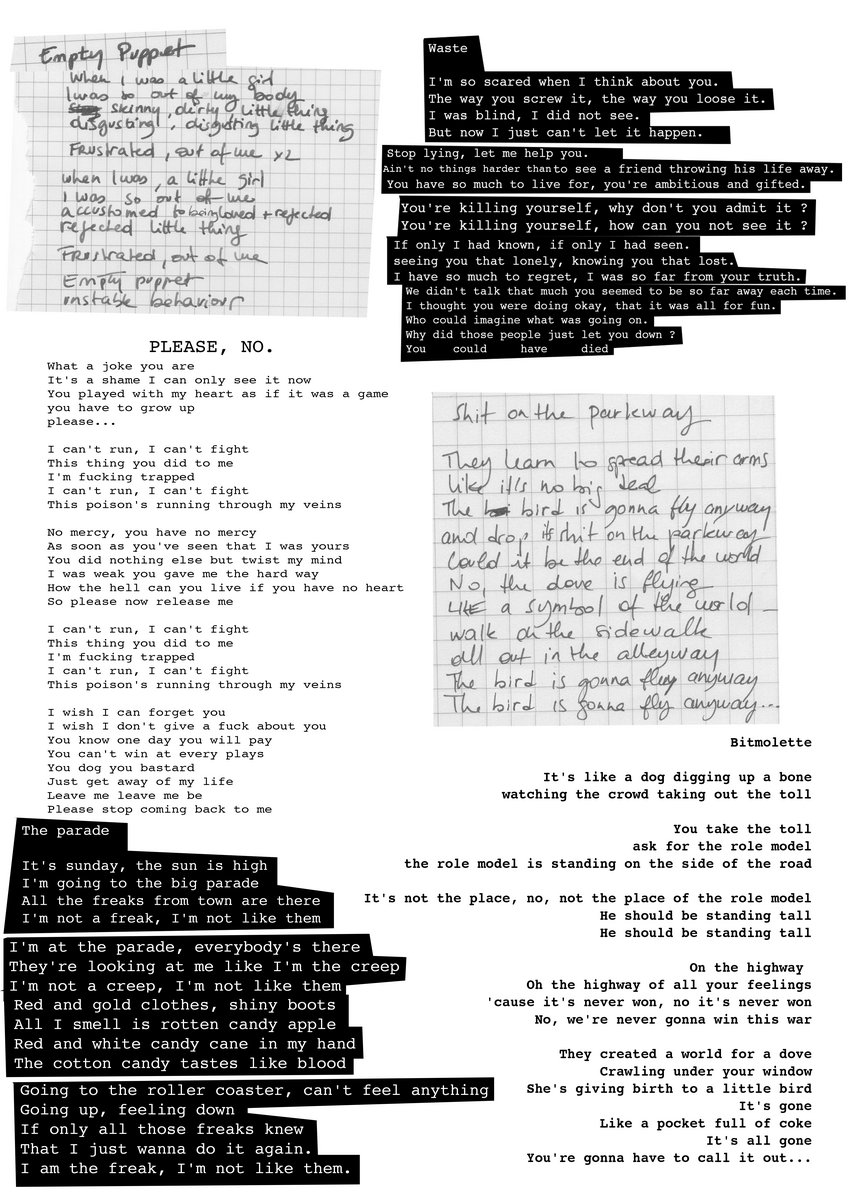 Empty Puppet
when I was a little girl
I was so out of my body
skinny, dirty little thing
disgusting, disgusting little thing
Frustrated, out of me x2
when I was, a little girl
I was so out of me
accustomed to being loved + rejected
rejected little thing
Frustrated, out of me
Empty puppet
instable behaviour
Waste
I'm so scared when I think about you.
The way you screw it, the way you loose it.
I was blind, I did not see.
But now I just can't let it happen.
Stop lying, let me help you.
Ain't no things harder than to see a friend throwing his life away.
You have so much to live for, you're ambitious and gifted.
You're killing yourself, why don't you admit it ?
You're killing yourself, how can you not see it ?
If only I had known, if only I had seen.
seeing you that lonely, knowing you that lost.
I have so much to regret, I was so far from your truth.
We didn't talk that much you seemed to be so far away each time.
I thought you were doing okay, that it was all for fun.
Who could imagine what was going on.
Why did those people just let you down ?
You could have died
PLEASE, NO.
What a joke you are
It's a shame I can only see it now
You played with my heart as if it was a game
you have to grow up
please...
I can't run, I can't fight
This thing you did to me
I'm fucking trapped
I can't run, I can't fight
This poison's running through my veins
No mercy, you have no mercy
As soon as you've seen that I was yours
You did nothing else but twist my mind
I was weak you gave me the hard way
How the hell can you live if you have no heart
So please now release me
I can't run, I can't fight
This thing you did to me
I'm fucking trapped
I can't run, I can't fight
This poison's running through my veins
I wish I can forget you
I wish I don't give a fuck about you
You know one day you will pay
You can't win at every plays
You dog you bastard
Just get away of my life
Leave me leave me be
Please stop coming back to me
Shit on the parkway
They learn to spread their arms
like it's no big deal
The bird is gonna fly anyway
and drop it's shit on the parkway
Could it be the end of the world
No, the dove is flying
LIKE a symbol of the world -
walk on the sidewalk
all out in the alleyway
The bird is gonna fly anyway
The bird is gonna fly anyway...
Bitmolette
It's like a dog digging up a bone
watching the crowd taking out the toll
You take the toll
ask for the role model
the role model is standing on the side of the road
It's not the place, no, not the place of the role model
He should be standing tall
He should be standing tall
On the highway
Oh the highway of all your feelings
'cause it's never won, no it's never won
No, we're never gonna win this war
They created a world for a dove
Crawling under your window
She's giving birth to a little bird
It's gone
Like a pocket full of coke
It's all gone
You're gonna have to call it out...
The parade
It's sunday, the sun is high
I'm going to the big parade
All the freaks from town are there
I'm not a freak, I'm not like them
I'm at the parade, everybody's there
They're looking at me like I'm the creep
I'm not a creep, I'm not like them
Red and gold clothes, shiny boots
All I smell is rotten candy apple
Red and white candy cane in my hand
The cotton candy tastes like blood
Going to the roller coaster, can't feel anything
Going up, feeling down
If only all those freaks knew
That I just wanna do it again.
I am the freak, I'm not like them.